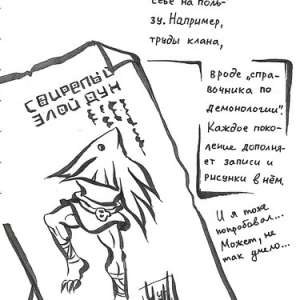 себе на поль-
зу. Например,
труды клана,
вроде „спра-
вочника по
демонологии".
Каждое поко-
ление дополня-
ет записи и
рисунки в нём.
И я тоже
попробовал...
Может, не
так умело...
СВИРЕПЫЙ
ЗЛОЙ ДУН